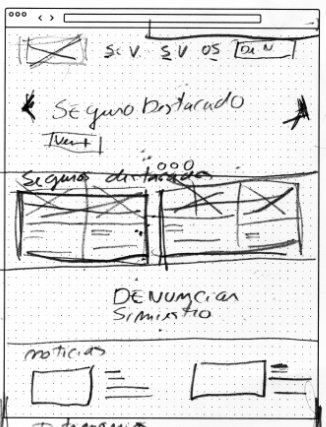 S. V. S V OS De N
Seguro Destacado
Ver +
Seguros destacados
DENUNCIAR
SINIESTRO
noticias